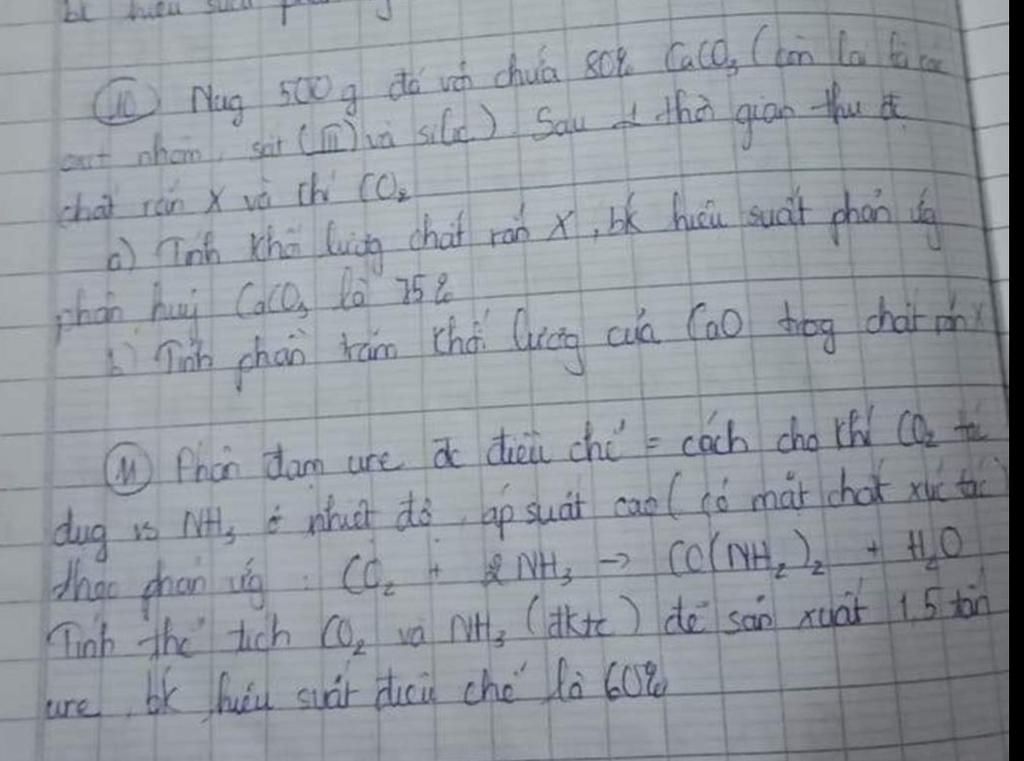 bk hiệu suất
(10) Nug 500 g đá vôi chứa 80% CaCO3 (còn lại là các
oxit nhôm, sắt (III) và silic). Sau 1 thời gian thu đc
chất rắn X và khí CO2
a) Tính khối lượng chất rắn X, bk hiệu suất phản ứg
phân huỷ CaCO3 là 75%
b) Tính phần trăm khối lượng của CaO trog chất rắn X
(11) Phân đạm ure đc điều chế = cách cho khí CO2 tác
dụg vs NH3 ở nhiệt độ, áp suất cao (có mặt chất xúc tác)
theo phản ứg : CO2 + 2NH3 → CO(NH2)2 + H2O
Tính thể tích CO2 và NH3 (đktc) để sản xuất 1,5 tấn
ure, bk hiệu suất điều chế là 60%